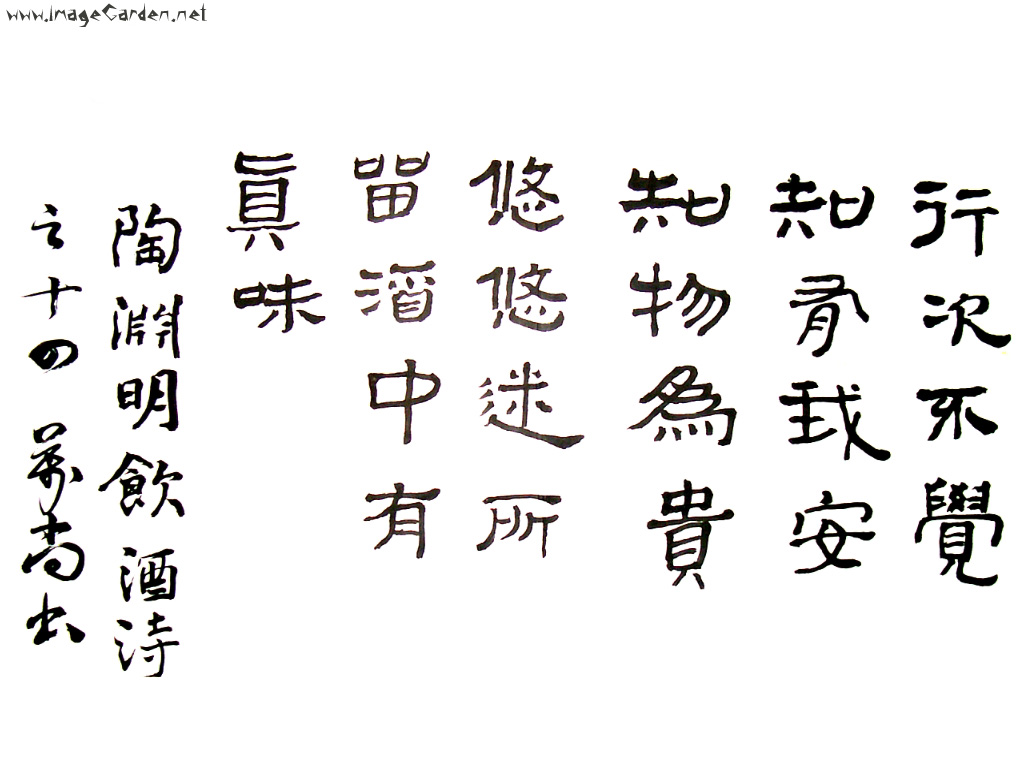 www.ImageGarden.net
行次不覺
知有我安
知物爲貴
悠悠迷所
畱酒中有
眞味
陶淵明飲酒詩
之十四 萬尚书